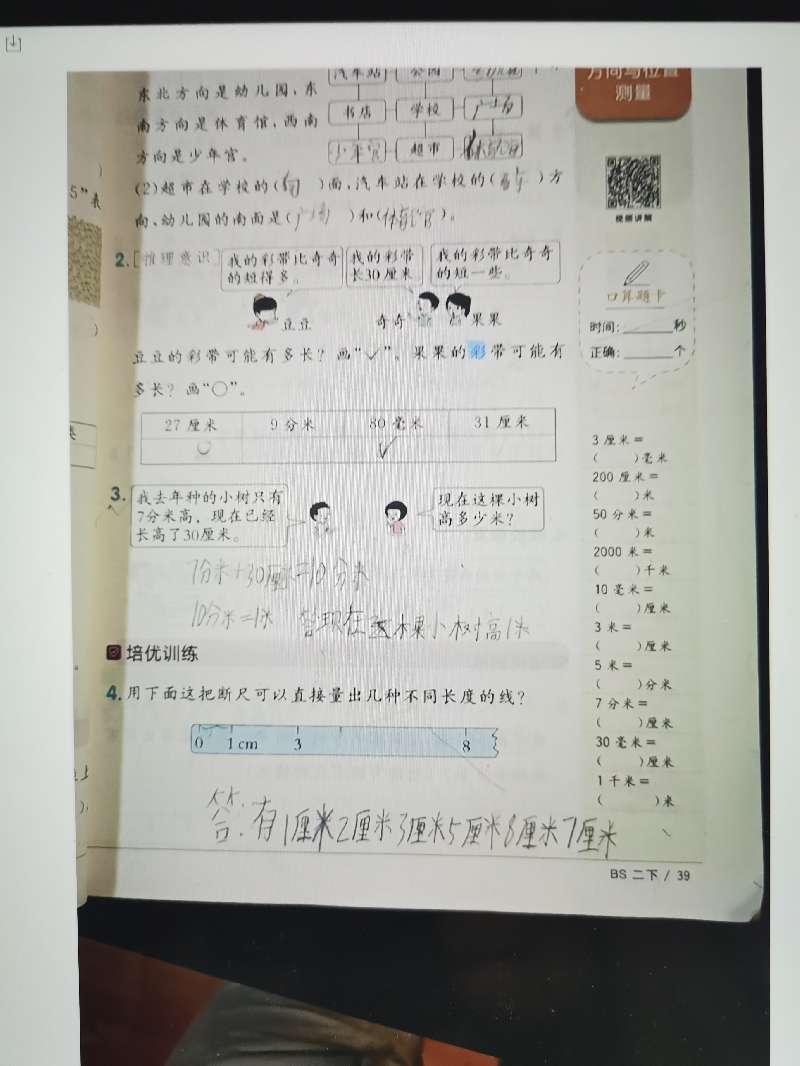 方向与位置
测量
汽车站 公园
东北方向是幼儿园,东
南方向是体育馆,西南
方向是少年宫。
书店 学校 广场
少年宫 超市 体育馆
(2)超市在学校的( )面,汽车站在学校的( )方
向、幼儿园的南面是(广场)和(体育馆)。
视频讲解
2.[推理意识]
我的彩带比奇奇
的短得多。
我的彩带
长30厘米
我的彩带比奇奇
的短一些。
豆豆 奇奇 果果
豆豆的彩带可能有多长?画“✓”。果果的彩带可能有
多长?画“○”。
27厘米 9分米 80毫米 31厘米
○ ✓
3.
我去年种的小树只有
7分米高,现在已经
长高了30厘米。
现在这棵小树
高多少米?
7分米+30厘米=10分米
10分米=1米 答现在这棵小树高1米
培优训练
4.用下面这把断尺可以直接量出几种不同长度的线?
0 1cm 3 8
答:有1厘米2厘米3厘米5厘米8厘米7厘米
口算题卡
时间:______秒
正确:______个
3厘米=
( )毫米
200厘米=
( )米
50分米=
( )米
2000米=
( )千米
10毫米=
( )厘米
3米=
( )厘米
5米=
( )分米
7分米=
( )厘米
30毫米=
( )厘米
1千米=
( )米
BS 二下 / 39
5”表